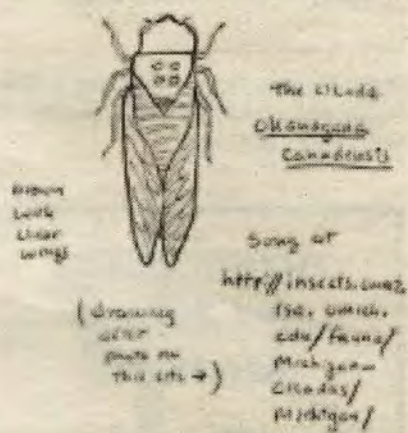 The Cicada
Okanagana
Canadensis
Brown
with
clear
wings
Song at
http://insects.ummz.
lsa.umich.
edu/fauna/
Michigan_
Cicadas/
Michigan/
(drawing
after
photo on
this site →)